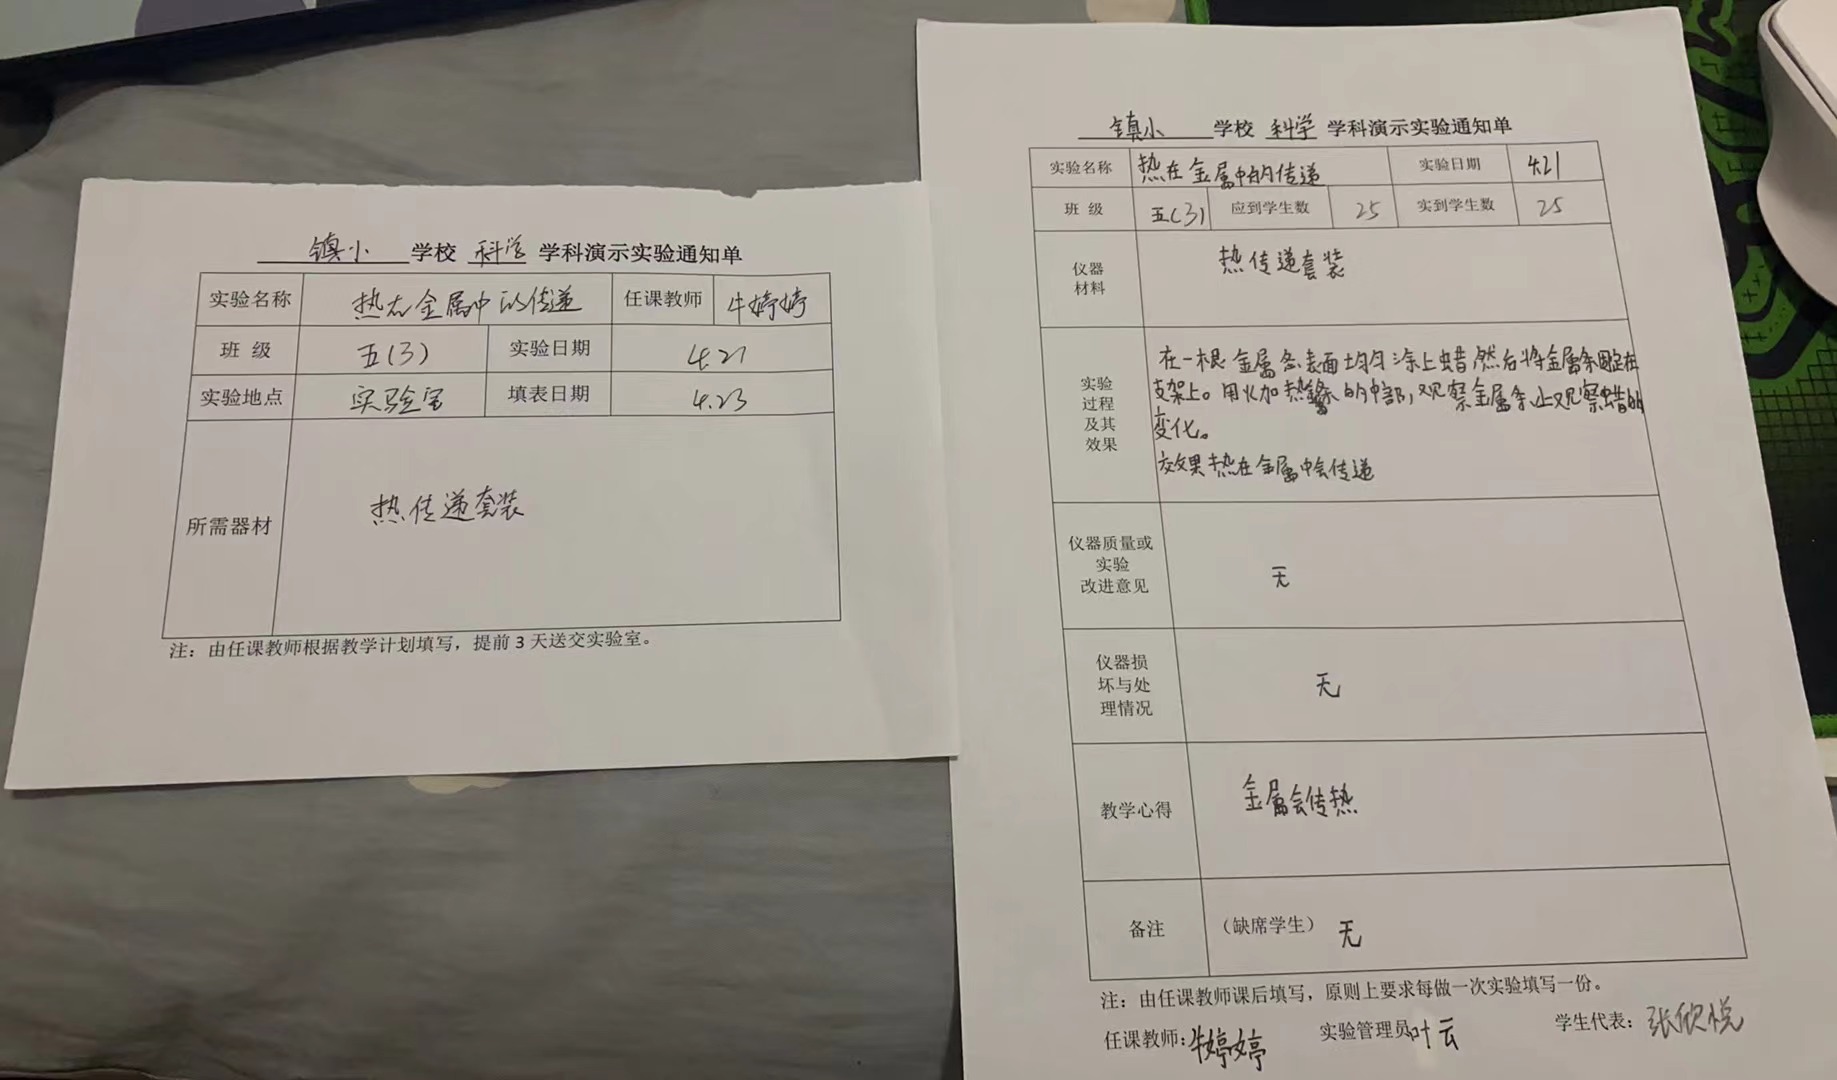 镇小 学校 科学 学科演示实验通知单
实验名称 热在金属中的传递 任课教师 牛婷婷
班 级 五(3) 实验日期 4.21
实验地点 实验室 填表日期 4.23
所需器材 热传递套装
注：由任课教师根据教学计划填写，提前 3 天送交实验室。
镇小 学校 科学 学科演示实验通知单
实验名称 热在金属中的传递 实验日期 4.21
班 级 五(3) 应到学生数 25 实到学生数 25
仪器
材料
热传递套装
实验
过程
及其
效果
在一根金属条表面均匀涂上蜡,然后将金属条固定在
支架上。用火加热 的中部,观察金属条上观察蜡的
变化。
效果 热在金属中会传递
仪器质量或
实验
改进意见
无
仪器损
坏与处
理情况
无
教学心得 金属会传热
备注 （缺席学生） 无
注：由任课教师课后填写，原则上要求每做一次实验填写一份。
任课教师：牛婷婷 实验管理员 叶云 学生代表：张欣悦